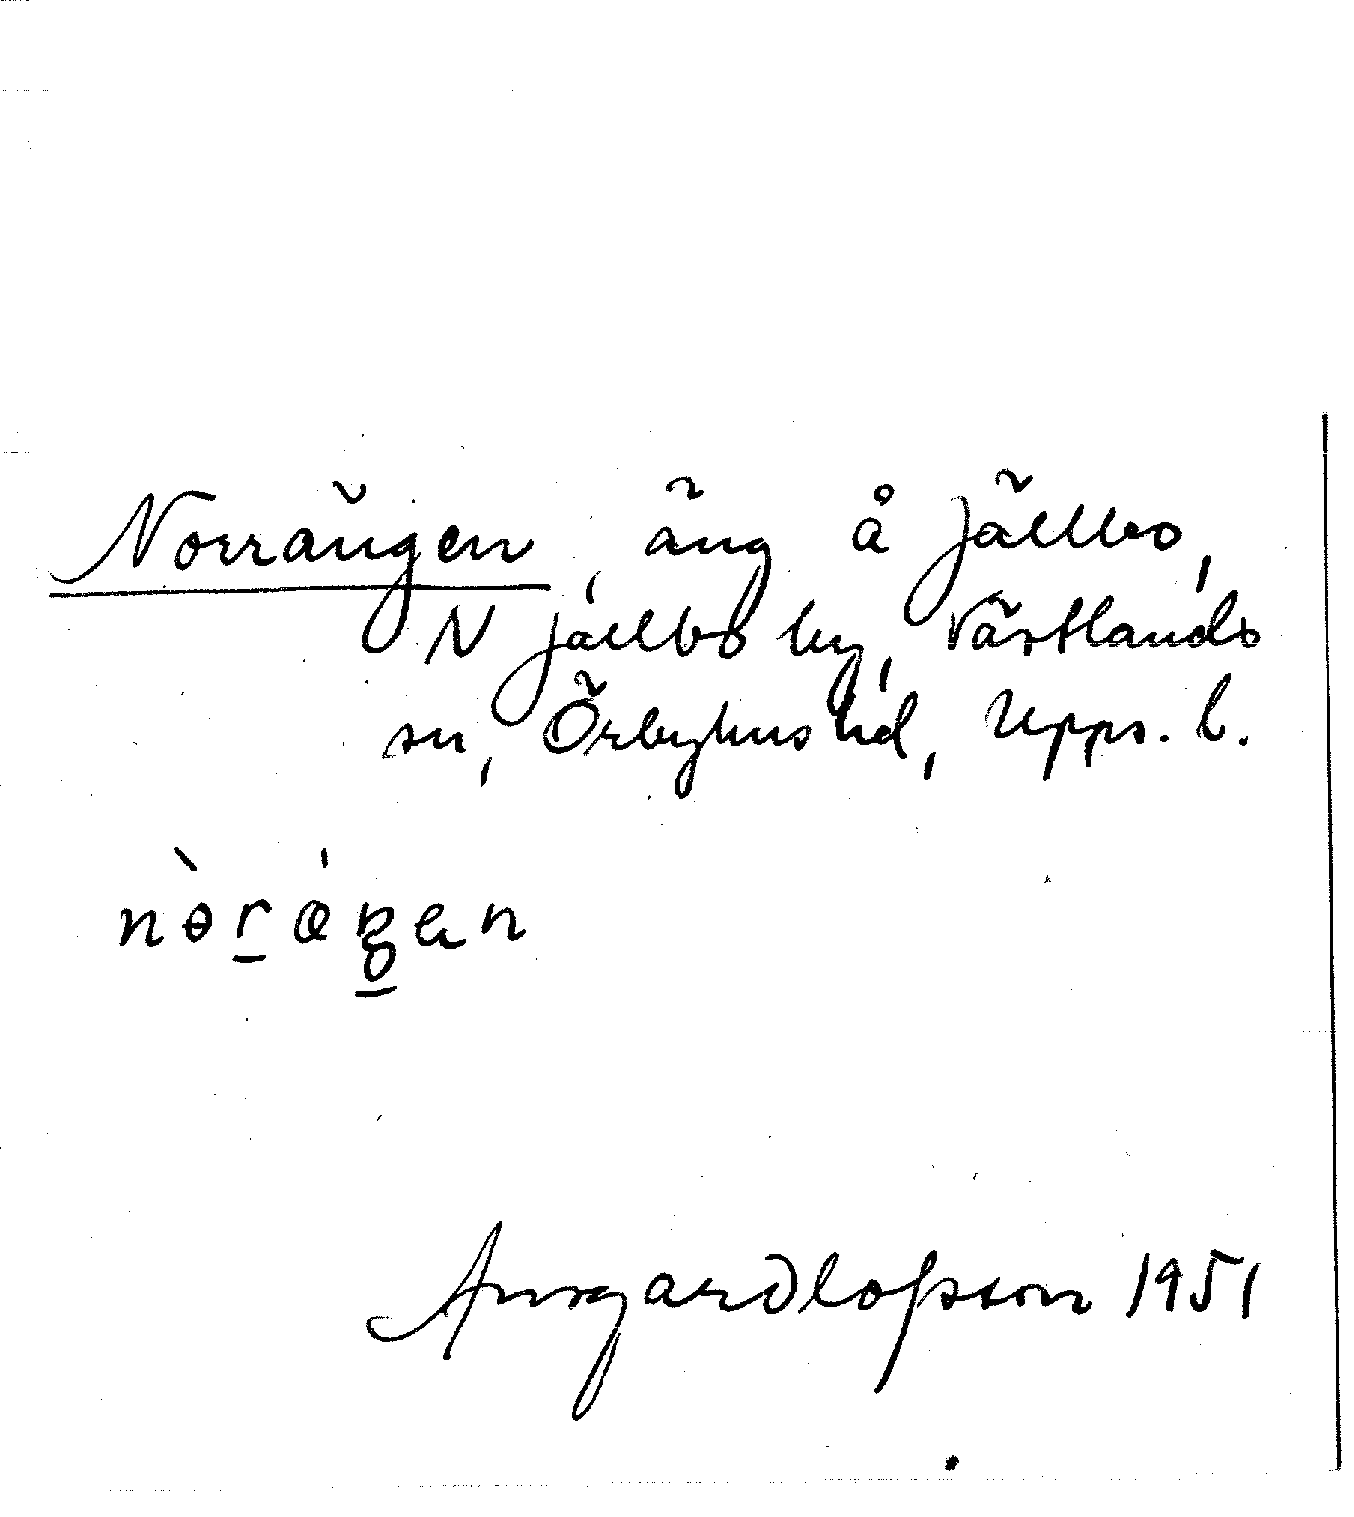 Norrängen, äng å Jällbo,
N Jällbo by, Västlands
sn, Örbyhus hd, Upps. l.
nɵ̀ræ̍ŋen
Ansgar Olofsson 1951